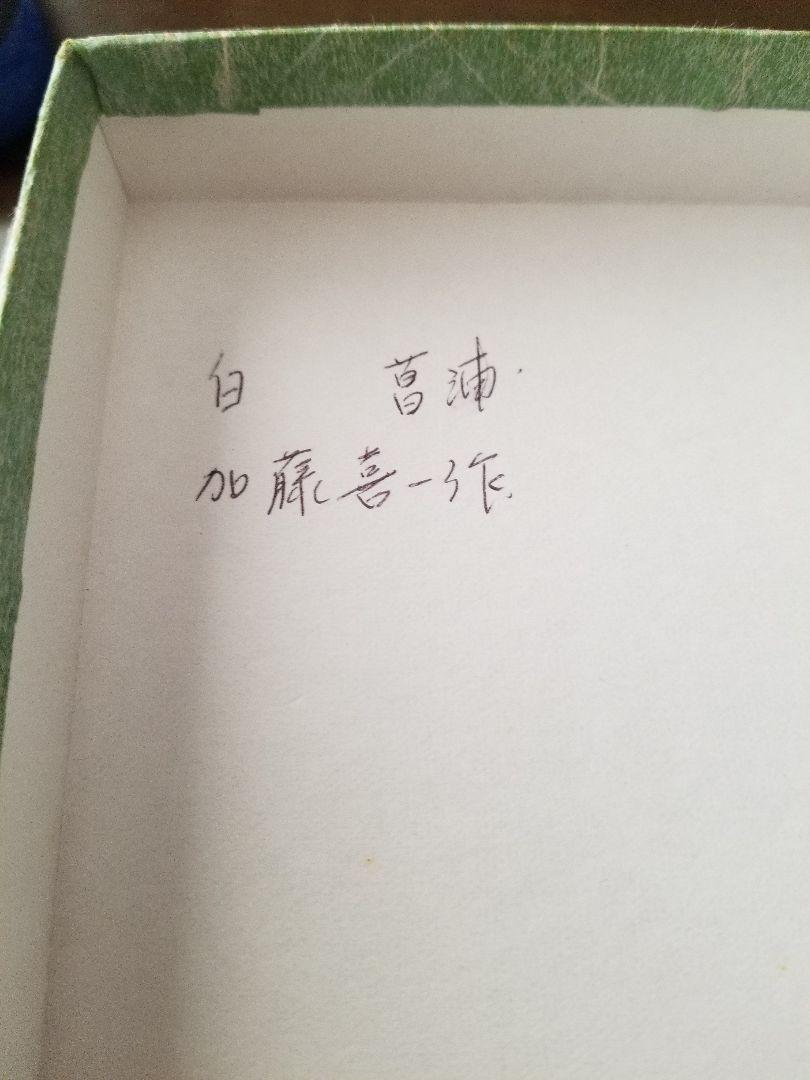 白 菖浦.
加藤喜一作.